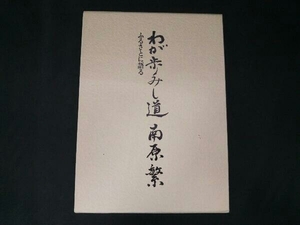 わが歩みし道 南原繁
ふるさとに語る